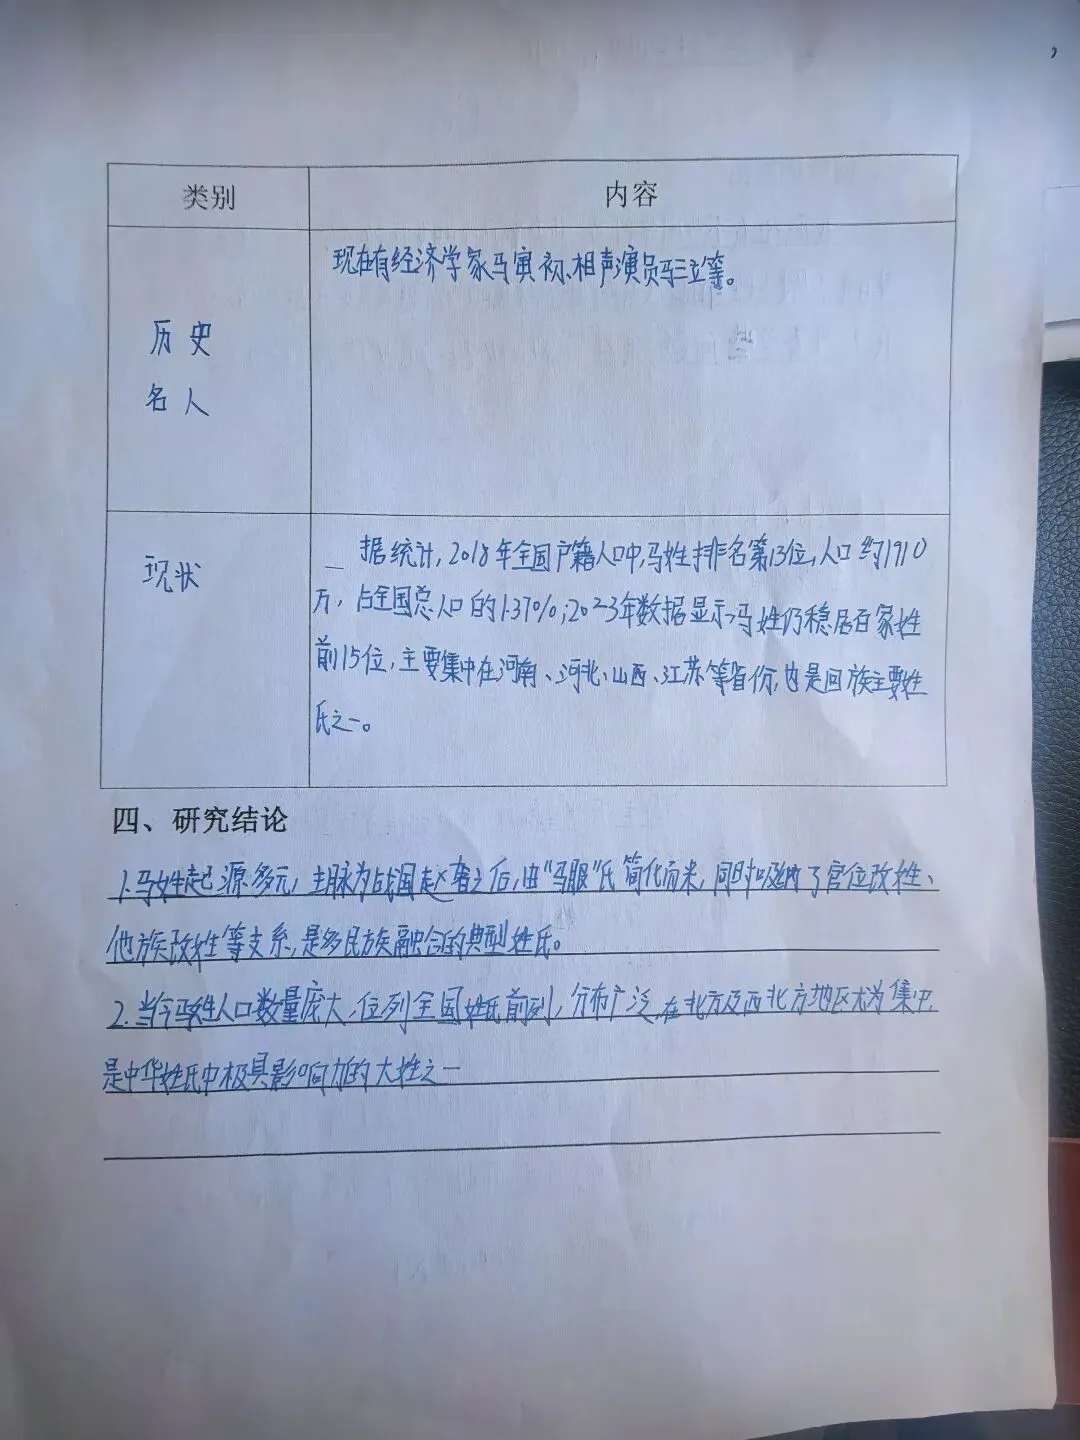 类别 内容
历史
名人
现在有经济学家马寅初、相声演员马三立等。
现状
据统计,2018年全国户籍人口中,马姓排名第13位,人口约1910
万,占全国总人口的1.37%;2023年数据显示,马姓仍稳居百家姓
前15位,主要集中在河南、河北、山西、江苏等省份,也是回族主要姓
氏之一。
四、研究结论
1.马姓起源多元,主脉为战国赵奢之后,由“马服”氏简化而来,同时吸纳了官位改姓、
他族改姓等支系,是多民族融合的典型姓氏。
2.当今马姓人口数量庞大,位列全国姓氏前列,分布广泛,在北方及西北方地区尤为集中,
是中华姓氏中极具影响力的大姓之一